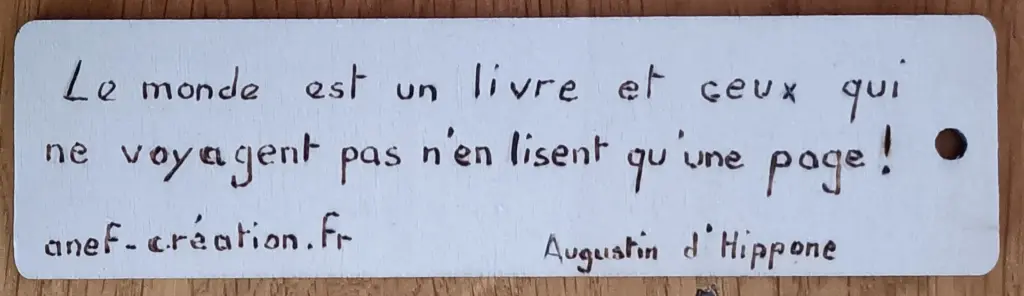 Le monde est un livre et ceux qui
ne voyagent pas n'en lisent qu'une page !
anef-création.fr
Augustin d'Hippone